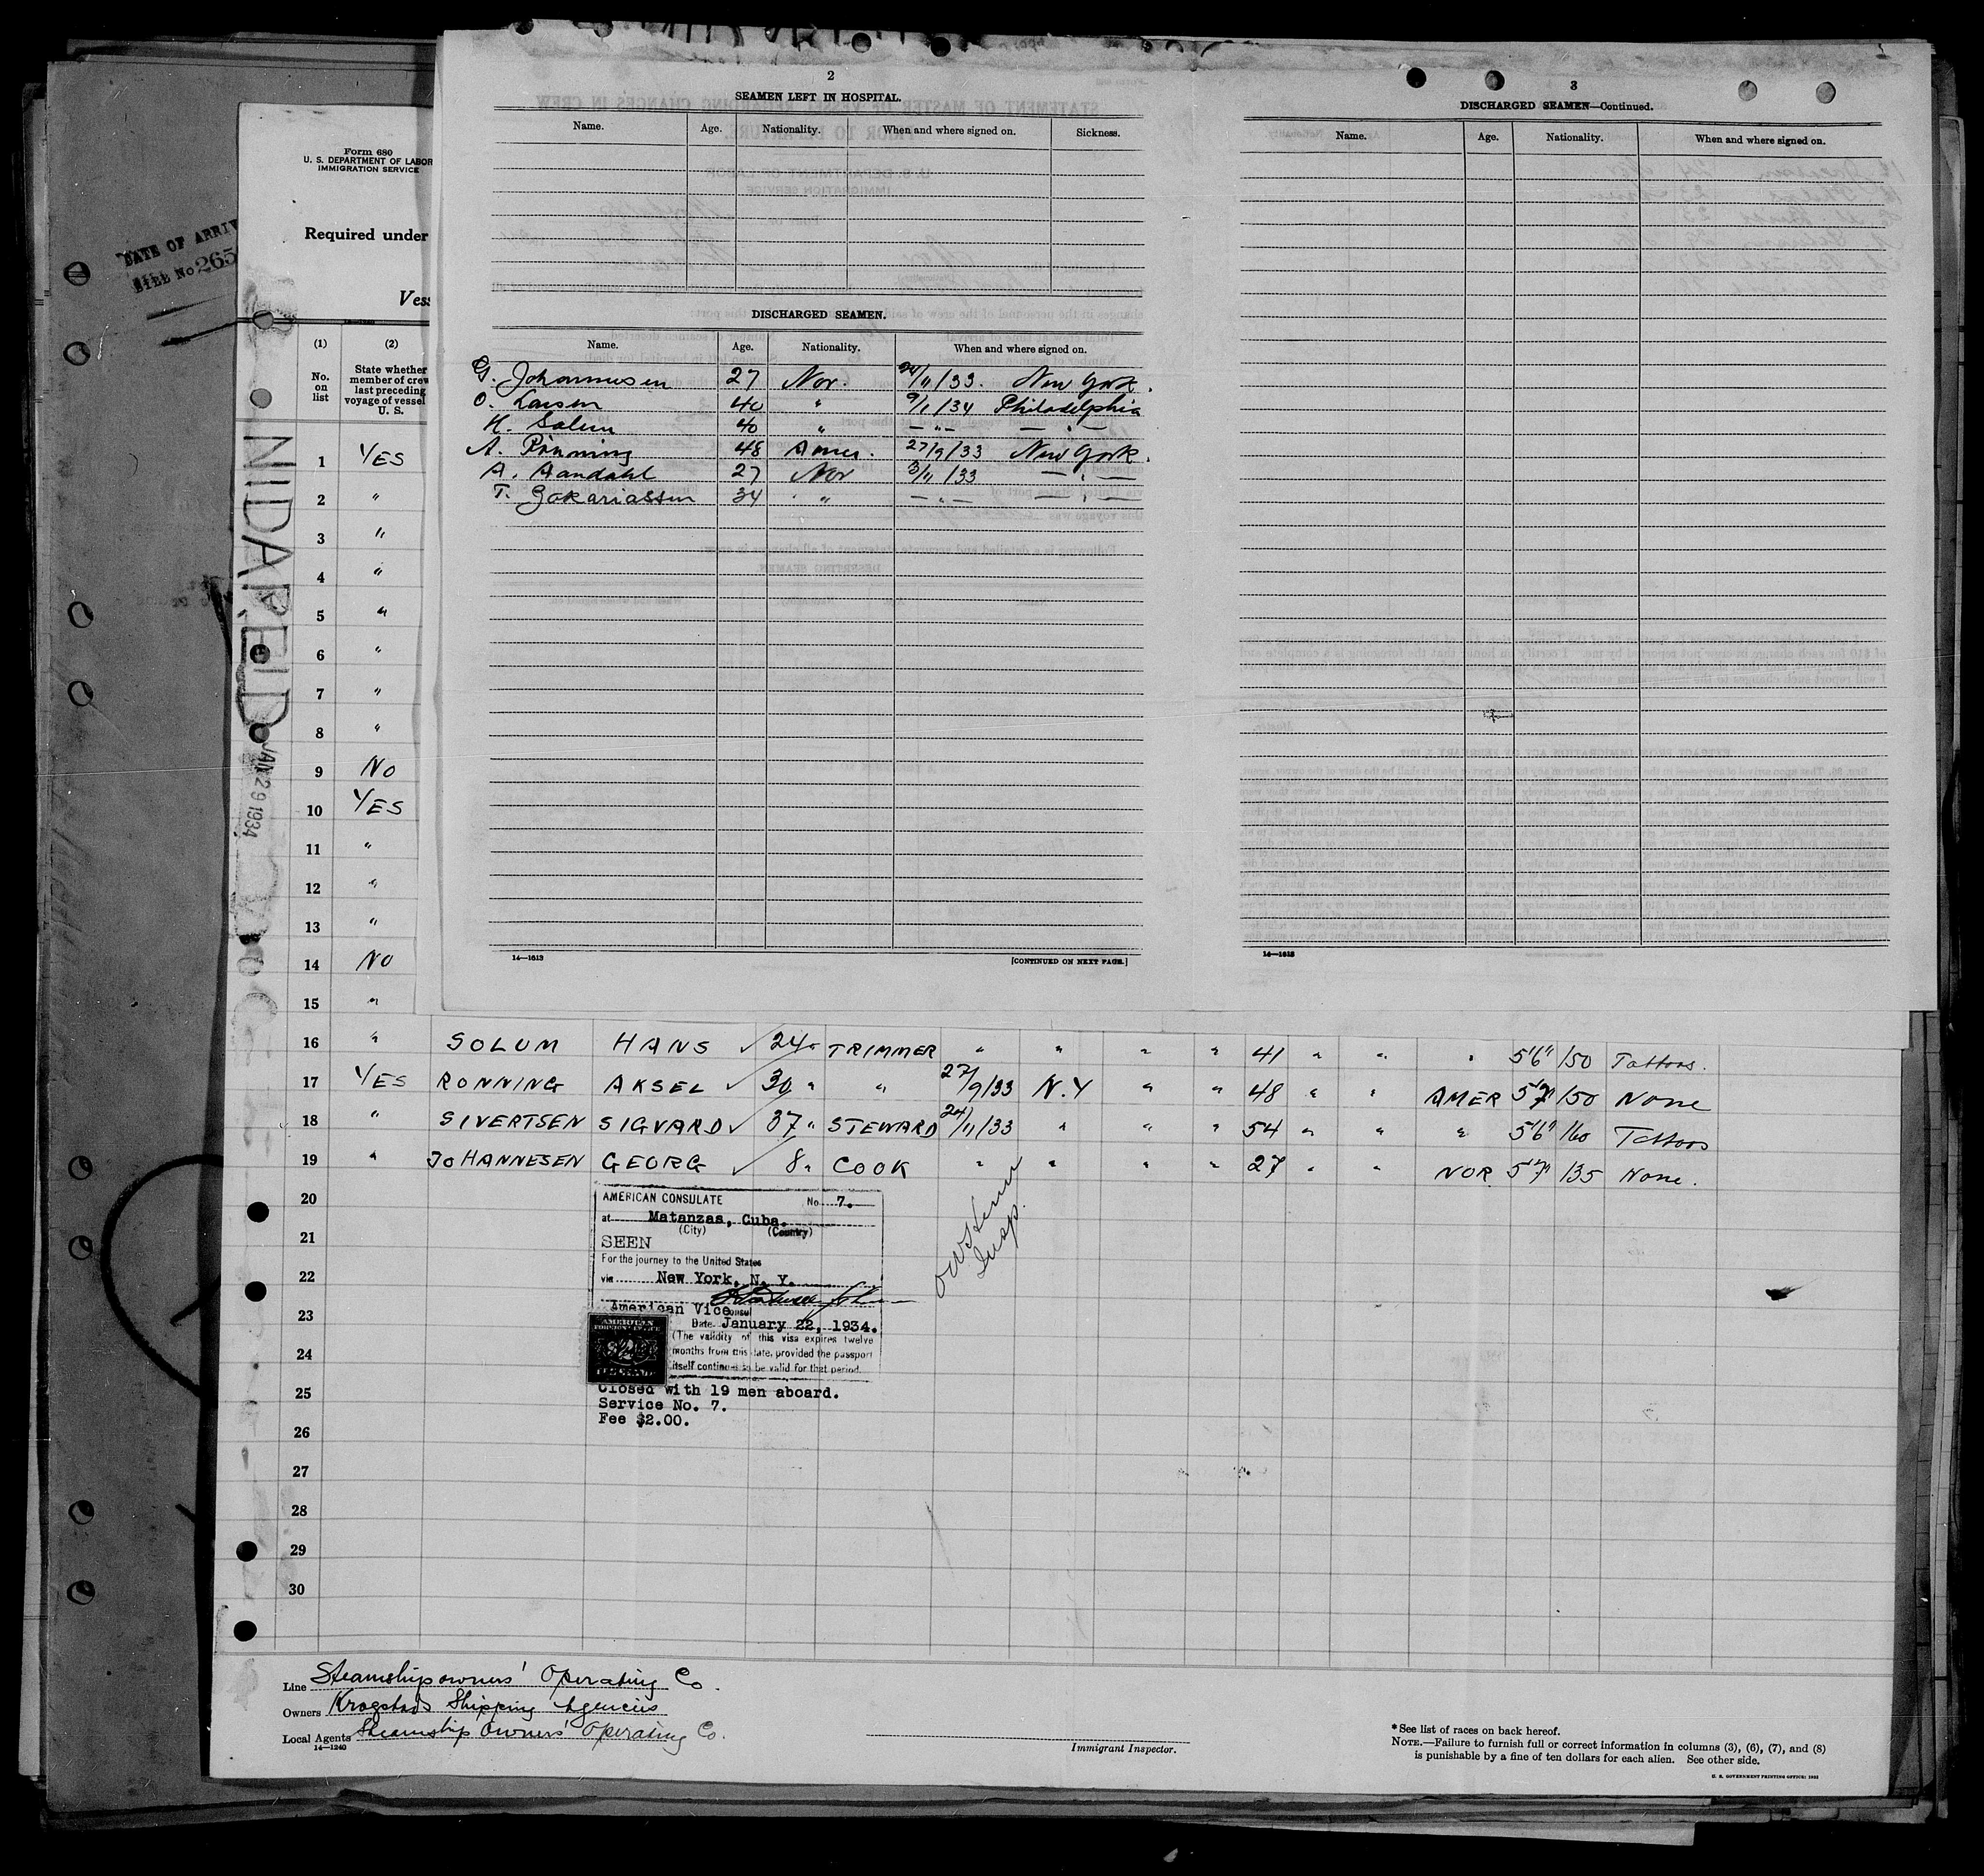 2
SEAMEN LEFT IN HOSPITAL.
Name. Age. Nationality. When and where signed on. Sickness.
DISCHARGED SEAMEN.
Name. Age. Nationality. When and where signed on.
G. Johannesen 27 Nor. 24/11/33. New York.
O. Larsen 40 " 9/1/34 Philadelphia
H. Solem 40 " — " — — " —
A. Rönning 48 Amer. 27/9/33 New York.
A. Aandahl 27 Nor 3/11/33 — " —
T. Zakariassen 34 " — " — — " —
14—1613 [CONTINUED ON NEXT PAGE.]
3
DISCHARGED SEAMEN—Continued.
Name. Age. Nationality. When and where signed on.
14—1613
DATE OF ARRIV
FILE No 265
Form 680
U. S. DEPARTMENT OF LABOR
IMMIGRATION SERVICE
Required under
Vess
NIDAREID
JAN 29 1934
(1) (2)
No. on list
State whether member of crew last preceding voyage of vessel U. S.
1 YES
2 "
3 "
4 "
5 "
6 "
7 "
8 "
9 NO
10 YES
11 "
12 "
13 "
14 NO
15 "
16 " SOLUM HANS ✓ 24 " TRIMMER " " " " 41 " " " 5'6" 150 Tattoos.
17 YES RONNING AKSEL ✓ 30 " " 27/9/33 N.Y " " 48 " " AMER 5'7" 150 None
18 " SIVERTSEN SIGVARD ✓ 37 " STEWARD 24/11/33 " " " 54 " " " 5'6" 160 Tattoos
19 " JOHANNESEN GEORG ✓ 8 " COOK " " " " 27 " " NOR 5'7" 135 None.
20
21
22
23
24
25
26
27
28
29
30
AMERICAN CONSULATE No. 7.
at Matanzas, Cuba.
(City) (Country)
SEEN
For the journey to the United States
via New York, N. Y.
American Vice Consul
Date January 22, 1934.
(The validity of this visa expires twelve
months from this date, provided the passport
itself continues to be valid for that period.
AMERICAN
FOREIGN SERVICE
Closed with 19 men aboard.
Service No. 7.
Fee $2.00.
Insp.
Line Steamshipowners' Operating Co.
Owners Krogstads Shipping Agencies
Local Agents Steamship Owners' Operating Co.
14—1240
Immigrant Inspector.
* See list of races on back hereof.
NOTE.—Failure to furnish full or correct information in columns (3), (6), (7), and (8)
is punishable by a fine of ten dollars for each alien. See other side.
U. S. GOVERNMENT PRINTING OFFICE: 1932